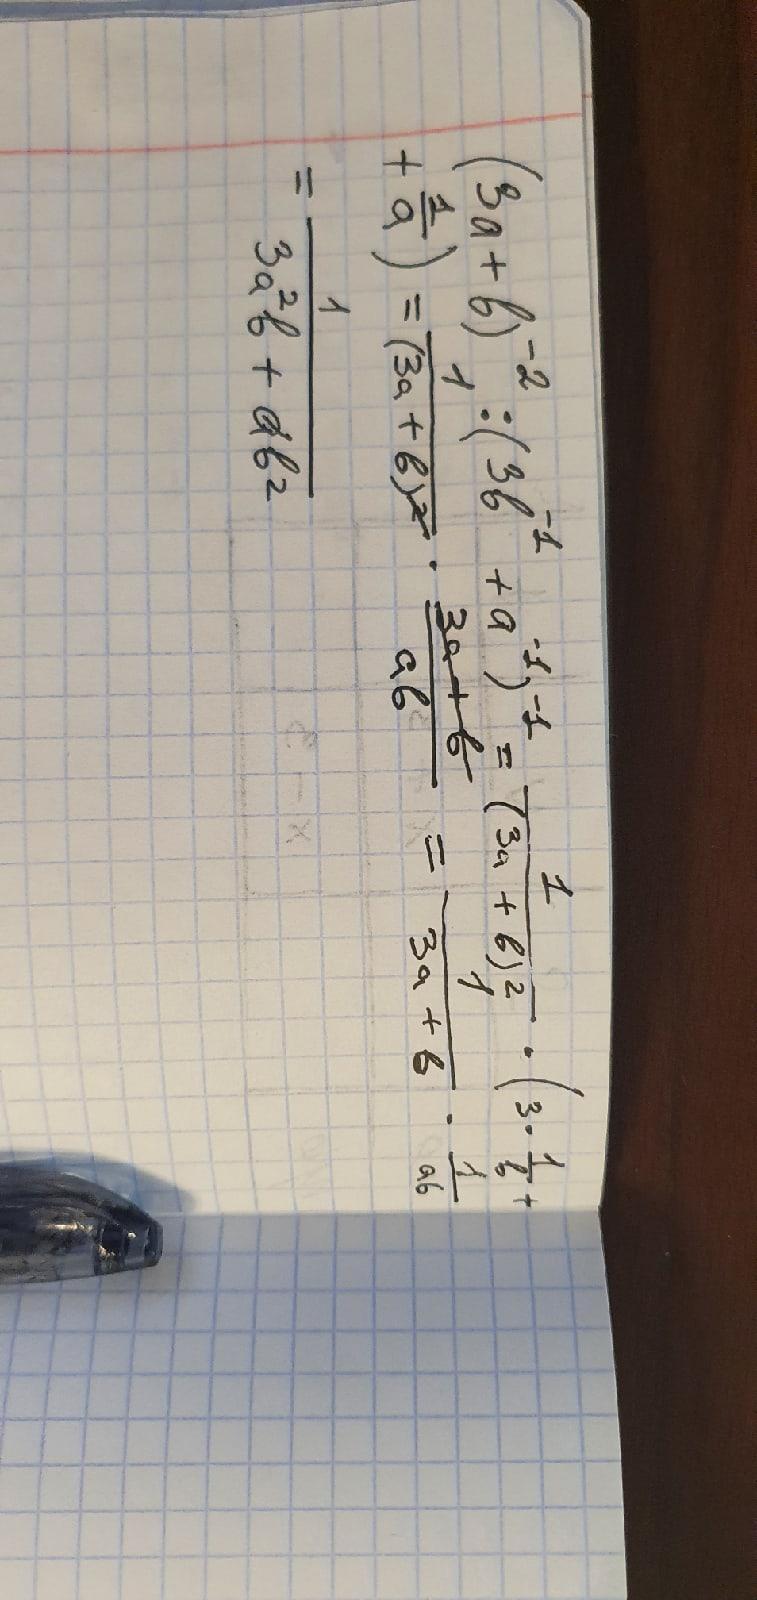 (3a+b)⁻² : (3b⁻¹ + a⁻¹)⁻¹ = 1/(3a+b)² · (3·1/b +
+ 1/a) = 1/(3a+b)² · (3a+b)/ab = 1/(3a+b) · 1/ab
= 1/(3a²b + ab²)